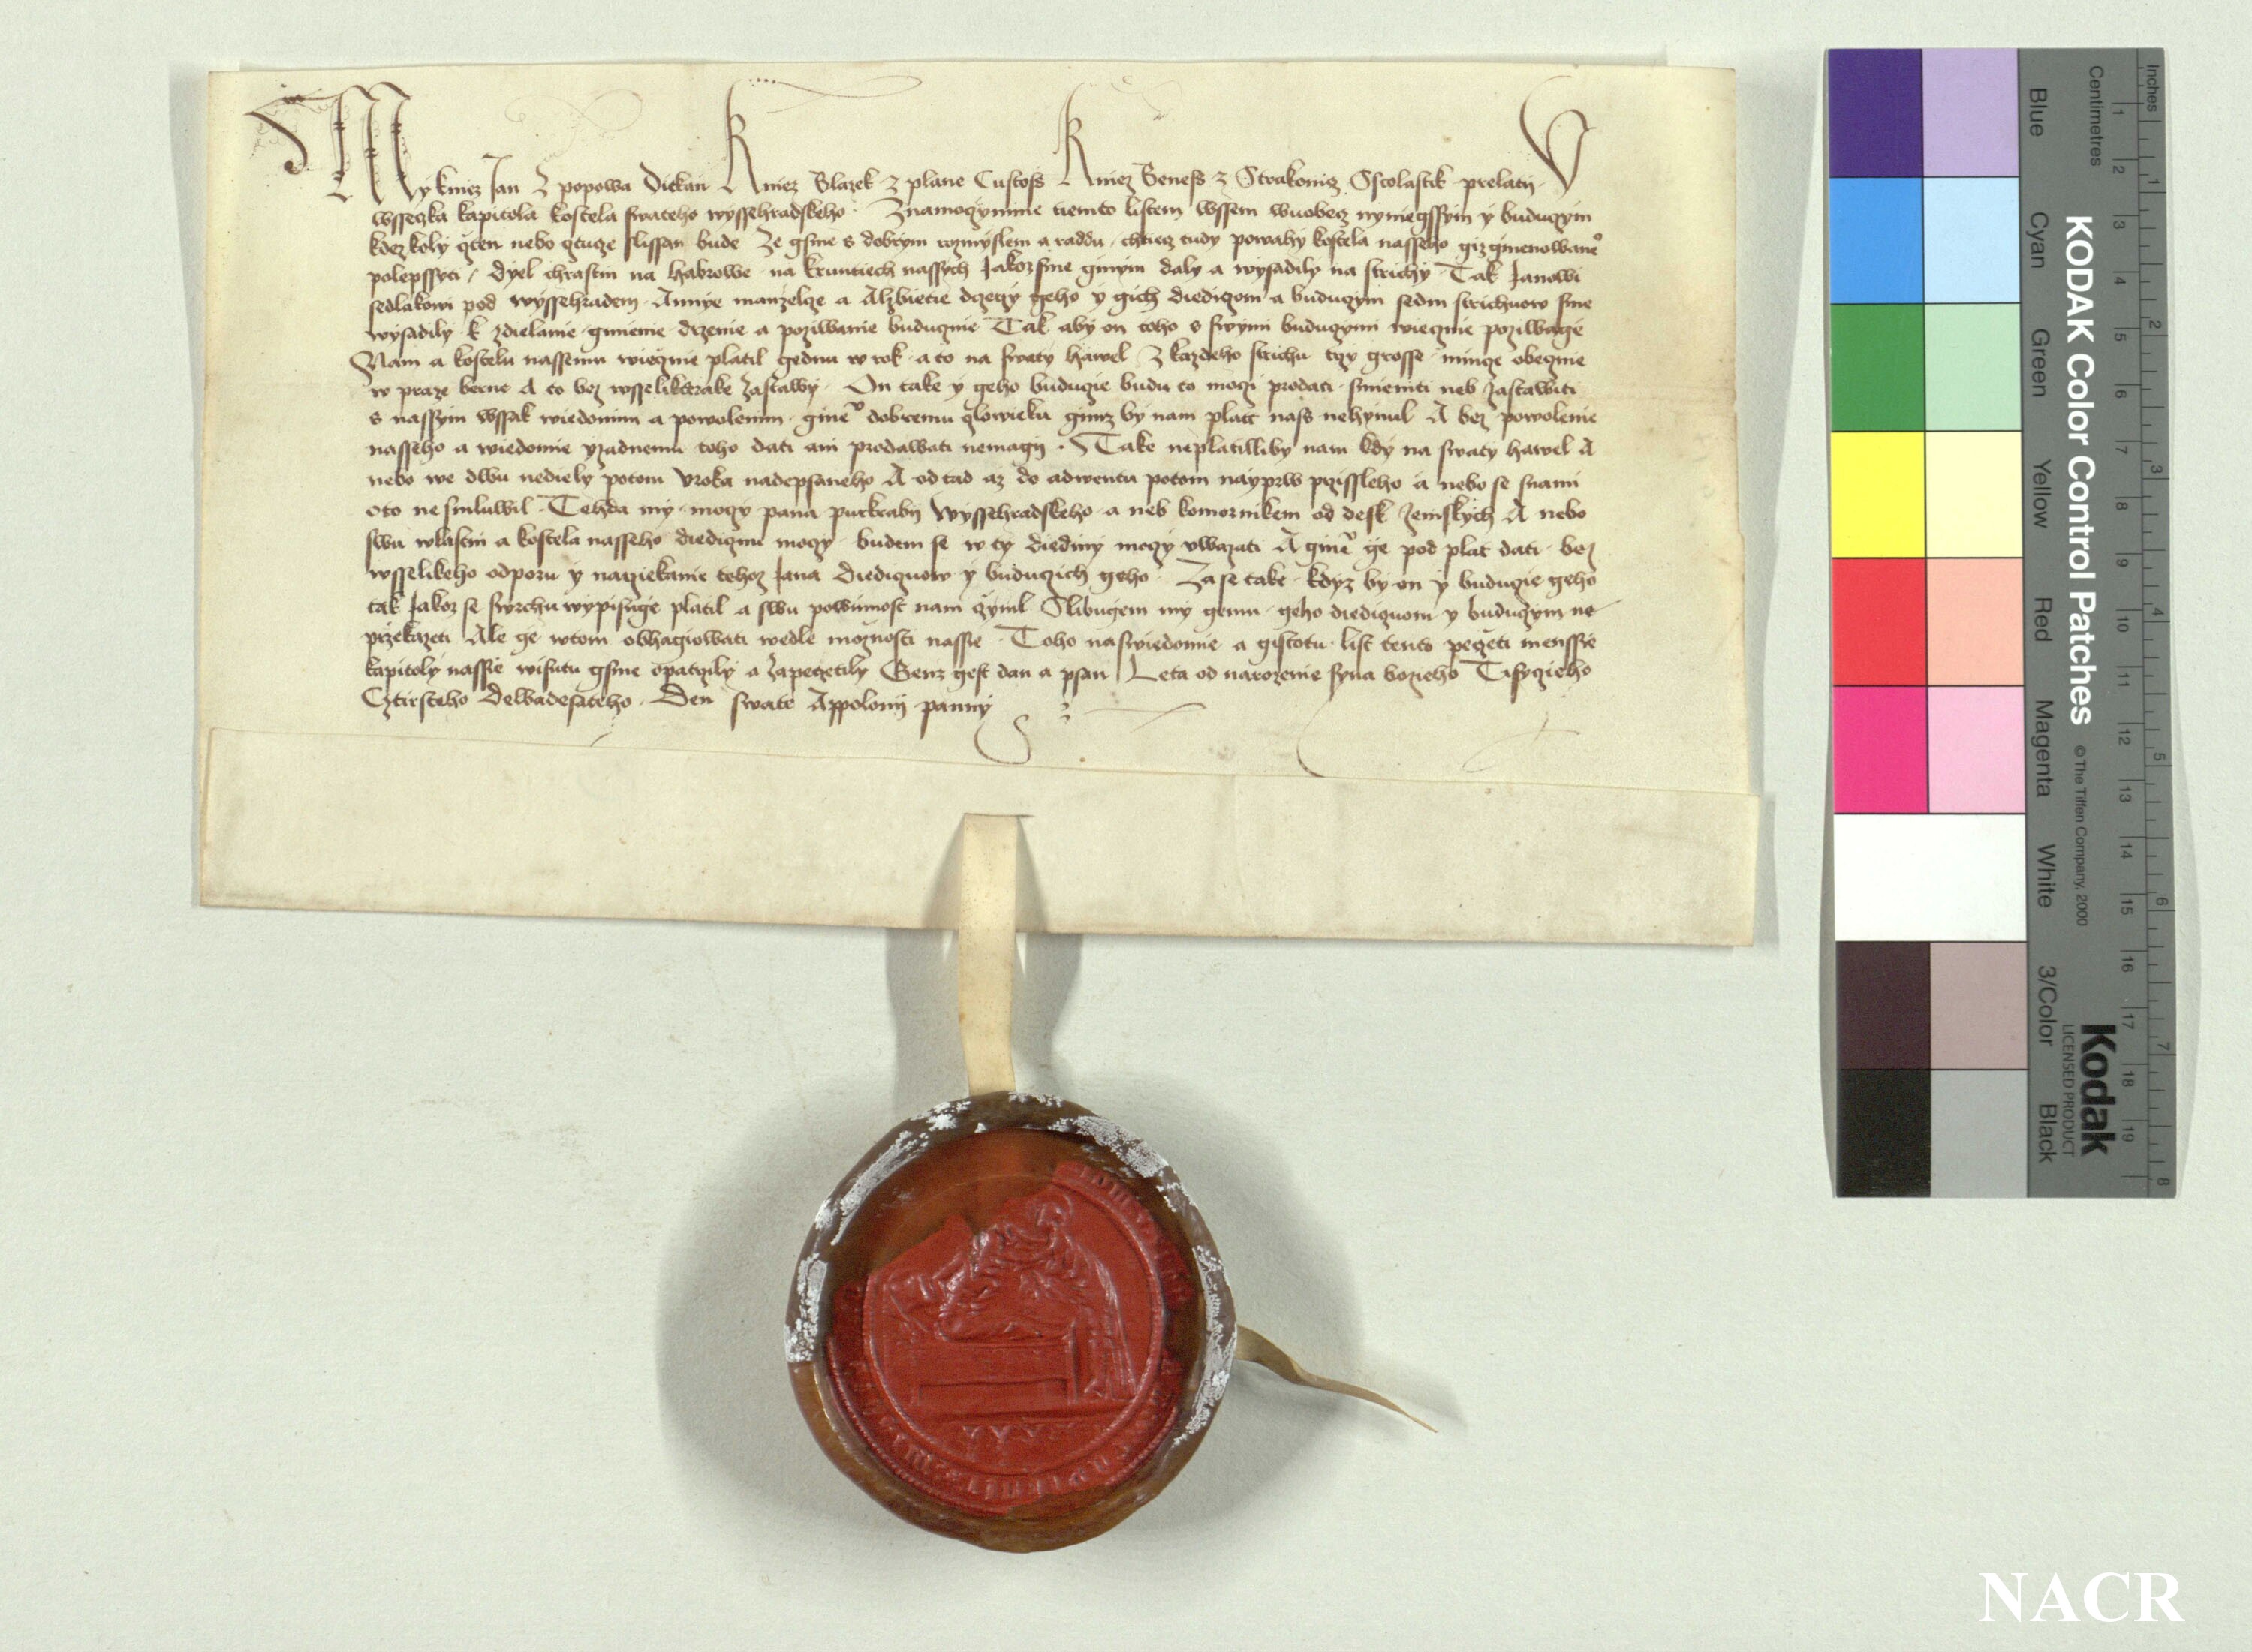 My kniez Jan Z popowa Diekan Kniez Blazek z plane Custoss Kniez Beness z Strakonicz Scolastik prelati y
wsseczka kapitola kostela swateho wyssehradskeho Znamo czynime tiemto listem wssem wuobecz nyniegssym y buduczym
kdez koly cžten nebo cztucze slissan bude Ze gsme s dobrym rozmyslem a raddu chtiecz tudy powahy kostela nasseho giz gmenowaneo
polepssyti dyel chrastin na habrowe na kruntiech nassych Jakoz sme ginym daly a wysadily na strichy Tak Janowi
sedlakowi pod wyssehradem Annye manzelcze a Alzbietie dczerzy geho y gich diediczom a buduczym sedm strichuow sme
wysadily k zdielanie gmienie drzenie a poziwanie buducznie Tak aby on toho s swymi buduczymi wiecznie poziwage
Nam a kostelu nassemu wiecznie platil gednu w rok a to na swaty hawel Z kazdeho strichu trzy grosse mincze obecznie
w praze berne A to bez wsselikterake zastawy On take y geho buduczie budu to moczi prodati smieniti neb zastawiti
s nassym wssak wiedomim a powolenim gineo dobremu czlowieku gimz by nam platt nass nehynul A bez powolenie
nasseho a wiedomie zzadnemu toho dati ani prodawati nemagij Take neplatilliby nam kdy na swaty hawel A
nebo we dwu nedieli potom Uroka nadepsaneho A od tad az do adwentu potom nayprw przissleho a nebo se snami
oto ne smluwil Tehda my moczy pana purkrabij Wyssehradskeho a neb komornikem od desk zemskych A nebo
swu wlastni a kostela nasseho diedicznu moczy budem se w ty diediny moczy uwazati A gineo ge pod plat dati bez
wsselikeho odporu y narziekanie tehoz Jana diediczuow y buduczich geho Zase take kdyz by on y buduczie geho
tak Jakoz se swrchu wypisuge platil a swu powinnost nam czynil Slibugem my gemu geho diediczuom y buduczym ne
przekazeti Ale ge wtom obhagiowati wedle moznosti nassie Toho naswiedomie a gistotu list tento peczeti menssie
kapitoly nassie wisutu gsme opatrzily a zapeczetily Genz gest dan a psan Leta od narozenie syna bozieho Tisyczieho
Cztirsteho Dewadesateho Den swate Appolonij panny
KODAK Color Control Patches
© The Tiffen Company, 2000
Kodak
LICENSED PRODUCT
Inches 1 2 3 4 5 6 7 8
Centimetres 1 2 3 4 5 6 7 8 9 10 11 12 13 14 15 16 17 18 19
Blue Cyan Green Yellow Red Magenta White 3/Color Black
NACR